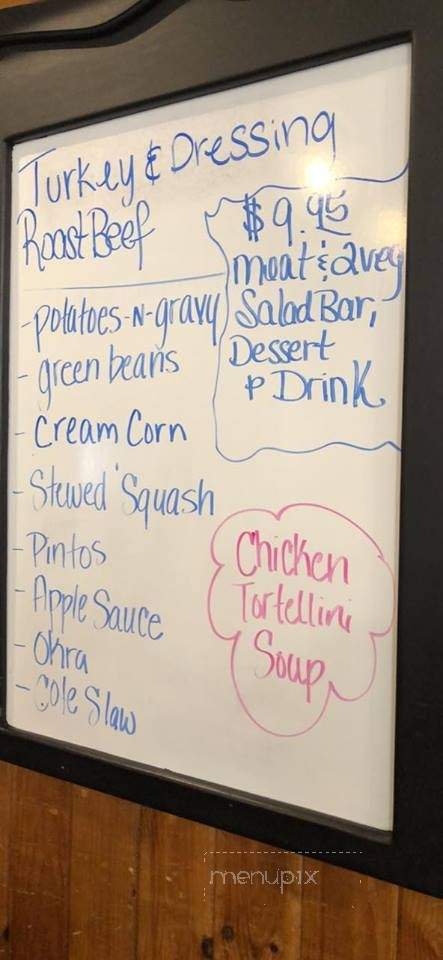 Turkey & Dressing
Roast Beef
- potatoes-n-gravy
- green beans
- Cream Corn
- Stewed Squash
- Pintos
- Apple Sauce
- Okra
- Cole Slaw
$9.95
meat & 2 veg
Salad Bar,
Dessert
& Drink
Chicken
Tortellini
Soup
menupix